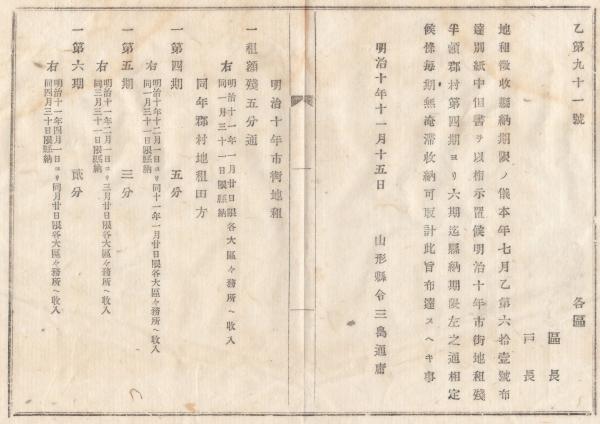 乙第九十一號
各區
區長
戸長
地租徴收縣納期限ノ儀本年七月乙第六拾壹號布
達別紙中但書ヲ以相示置候明治十年市街地租殘
半額郡村第四期ヨリ六期迄縣納期限左之通相定
候條毎期無淹滯收納可取計此旨布達スヘキ事
明治十年十一月十五日
山形縣令三島通庸
明治十年市街地租
一租額殘五分通
右明治十一年一月廿日限各大區々務所ヘ收入
同一月三十一日限縣納
同年郡村地租田方
一第四期 五分
右明治十年十二月一日ヨリ同十一年一月廿日限各大區々務所ヘ收入
同一月三十一日限縣納
一第五期 三分
右明治十一年二月一日ヨリ三月廿日限各大區々務所ヘ收入
同三月三十一日限縣納
一第六期 貳分
右明治十一年四月一日ヨリ同月廿日限各大區々務所ヘ收入
同四月三十日限縣納